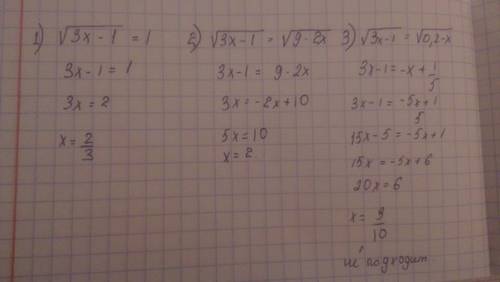 1) √3x-1 = 1
3x-1 = 1
3x = 2
x = 2/3
2) √3x-1 = √9-2x
3x-1 = 9-2x
3x = -2x+10
5x = 10
x = 2
3) √3x-1 = √0,2-x
3x-1 = -x + 1/5
3x-1 = -5x+1/5
15x-5 = -5x+1
15x = -5x+6
20x = 6
x = 3/10
не подходит.